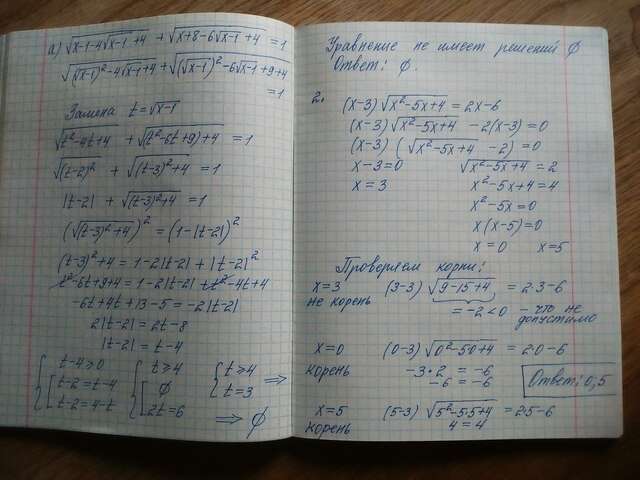 а) √(x-1-4√(x-1)+4) + √(x+8-6√(x-1)+4) = 1
√((√(x-1))²-4√(x-1)+4) + √((√(x-1))²-6√(x-1)+9+4) = 1
Замена t=√(x-1)
√(t²-4t+4) + √((t²-6t+9)+4) = 1
√((t-2)²) + √((t-3)²+4) = 1
|t-2| + √((t-3)²+4) = 1
(√((t-3)²+4))² = (1-|t-2|)²
(t-3)²+4 = 1-2|t-2| + |t-2|²
t²-6t+9+4 = 1-2|t-2| + t²-4t+4
-6t+4t+13-5 = -2|t-2|
2|t-2| = 2t-8
|t-2| = t-4
{ t-4≥0 [ t-2=t-4 t-2=4-t
{ t≥4 [ ∅ 2t=6
{ t≥4 t=3 ⇒
⇒ ∅
Уравнение не имеет решений ∅
Ответ: ∅.
2. (x-3)√(x²-5x+4) = 2x-6
(x-3)√(x²-5x+4) - 2(x-3)=0
(x-3)(√(x²-5x+4) - 2)=0
x-3=0 √(x²-5x+4) = 2
x=3 x²-5x+4=4
x²-5x=0
x(x-5)=0
x=0 x=5
Проверяем корни:
x=3 (3-3)√(9-15+4) = 2·3-6
не корень =-2<0 - что не
допустимо
x=0 (0-3)√(0²-5·0+4) = 2·0-6
корень -3·2 = -6
-6 = -6
Ответ: 0;5
x=5 (5-3)√(5²-5·5+4) = 2·5-6
корень 4=4